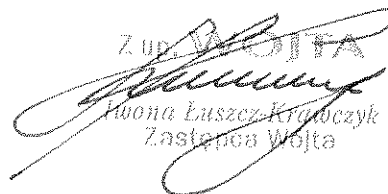 Z up. WÓJTA
Iwona Łuszcz-Krawczyk
Zastępca Wójta